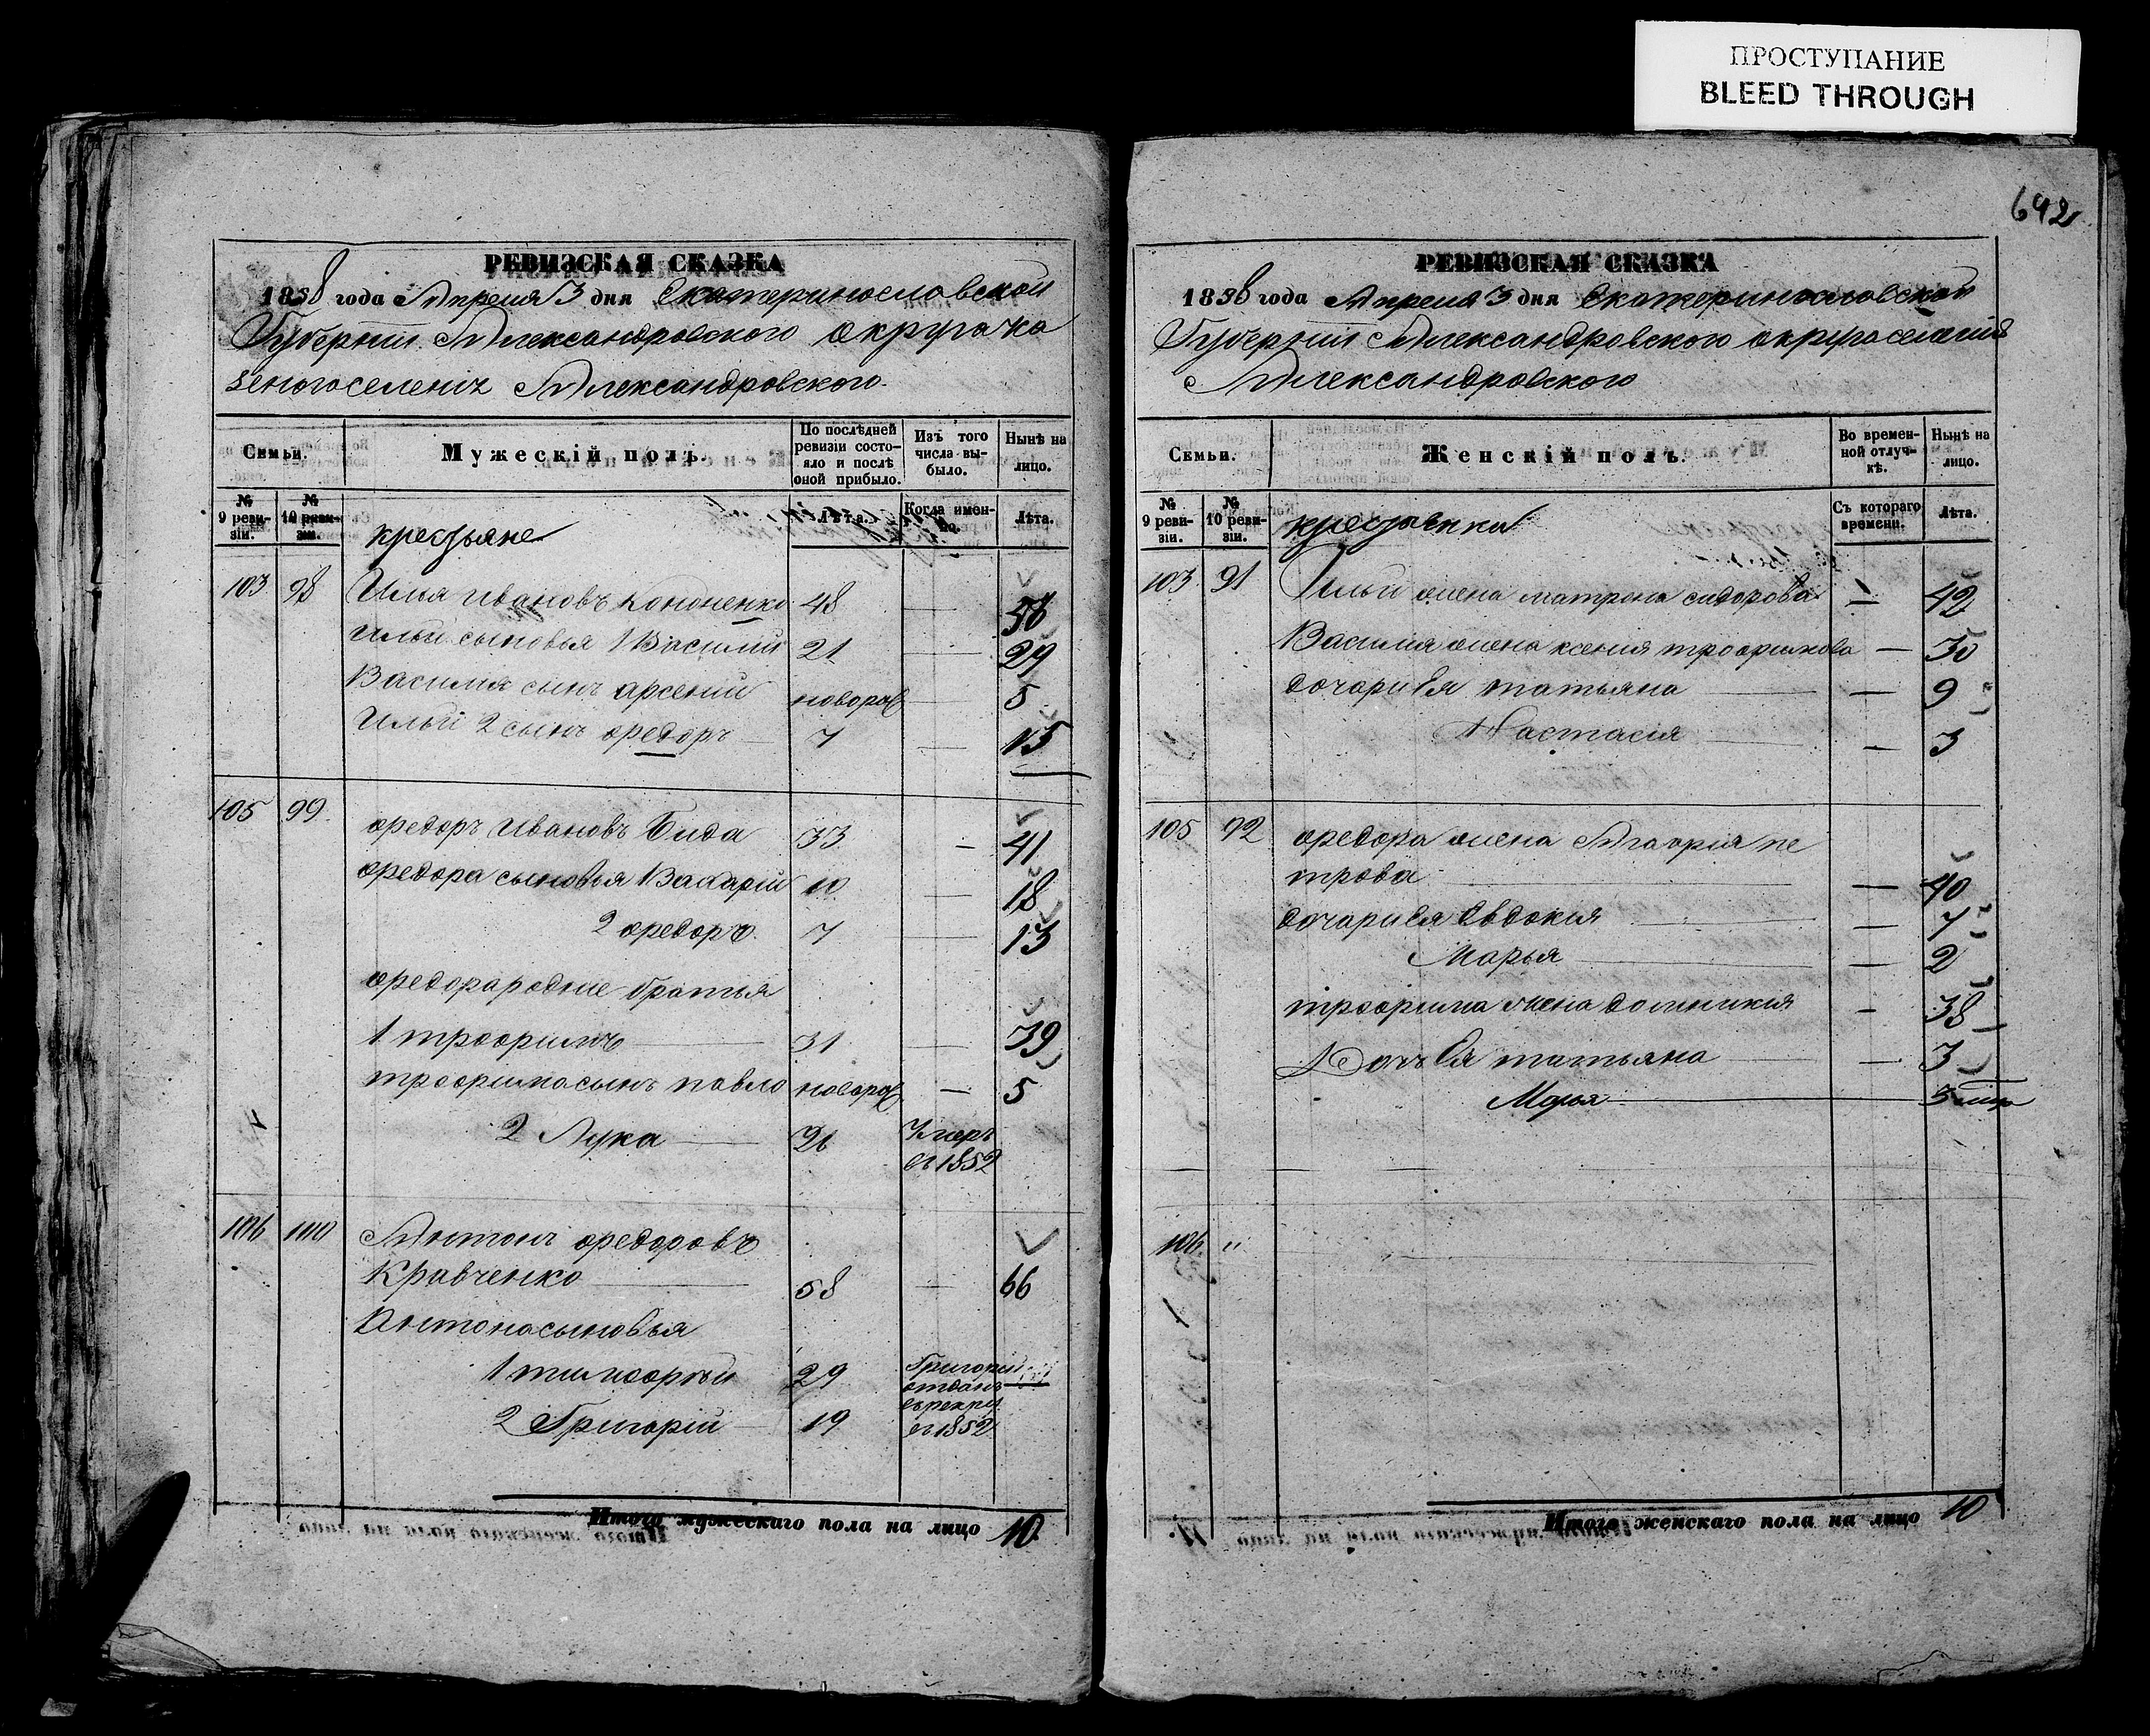 ПРОСТУПАНИЕ
BLEED THROUGH
642
РЕВИЗСКАЯ СКАЗКА
1858 года Апреля 3 дня Екатеринославской
Губерніи Александровского округа ка
зеного селенія Александровского
Семьи.
Мужескій полъ.
По послѣдней ревизіи состояло и послѣ оной прибыло.
Изъ того числа выбыло.
Нынѣ на лицо.
№ 9 ревизіи.
№ 10 ревизіи.
Лѣта.
Когда именно.
Лѣта.
крестьяне
103 98 Илья Ивановъ Кононенко 48 — 56
Ильи сыновья 1 Василий 21 — 29
Василия сынъ арсений новорож — 5
Ильи 2 сынъ Федоръ 7 — 15
105 99 Федоръ Ивановъ Бида 33 — 41
Федора сыновья 1 Захарій 10 — 18
2 Федоръ 7 — 15
Федора родние братья
1 трофимъ 31 — 39
трофима сынъ павло новорож — 5
2 Лука 26 Умеръ
въ 1852
106 100 Антонъ Федоровъ
Кравченко 58 — 66
Антона сыновья
1 тимофей 29 Григорій
отданъ
въ рекру
2 Григорій 19 въ 1852
Итого мужескаго пола на лицо 10
РЕВИЗСКАЯ СКАЗКА
1858 года Апреля 3 дня Екатеринославской
Губерніи Александровского округа селенія
Александровского
Семьи.
Женскій полъ.
Во временной отлучкѣ.
Нынѣ на лицо.
№ 9 ревизіи.
№ 10 ревизіи.
Съ котораго времени.
Лѣта.
крестьянки
103 91 Ильи жена матрена сидорова — 42
Василия жена ксения трофимова — 30
дочари Ея татьяна — 9
Настасія — 3
105 92 Федора жена Агафия пе
трова — 40
дочари Ея Евдокия — 7
Марья — 2
трофима жена домникия — 38
Дочь Ея татьяна — 3
Марья
106 "
Итого женскаго пола на лицо 10